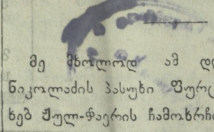 მე მხოლოდ ამ
ნიკოლაძის პასუხი ფურც
ხებ ჟულ-ჭავრის ჩამოხრჩ